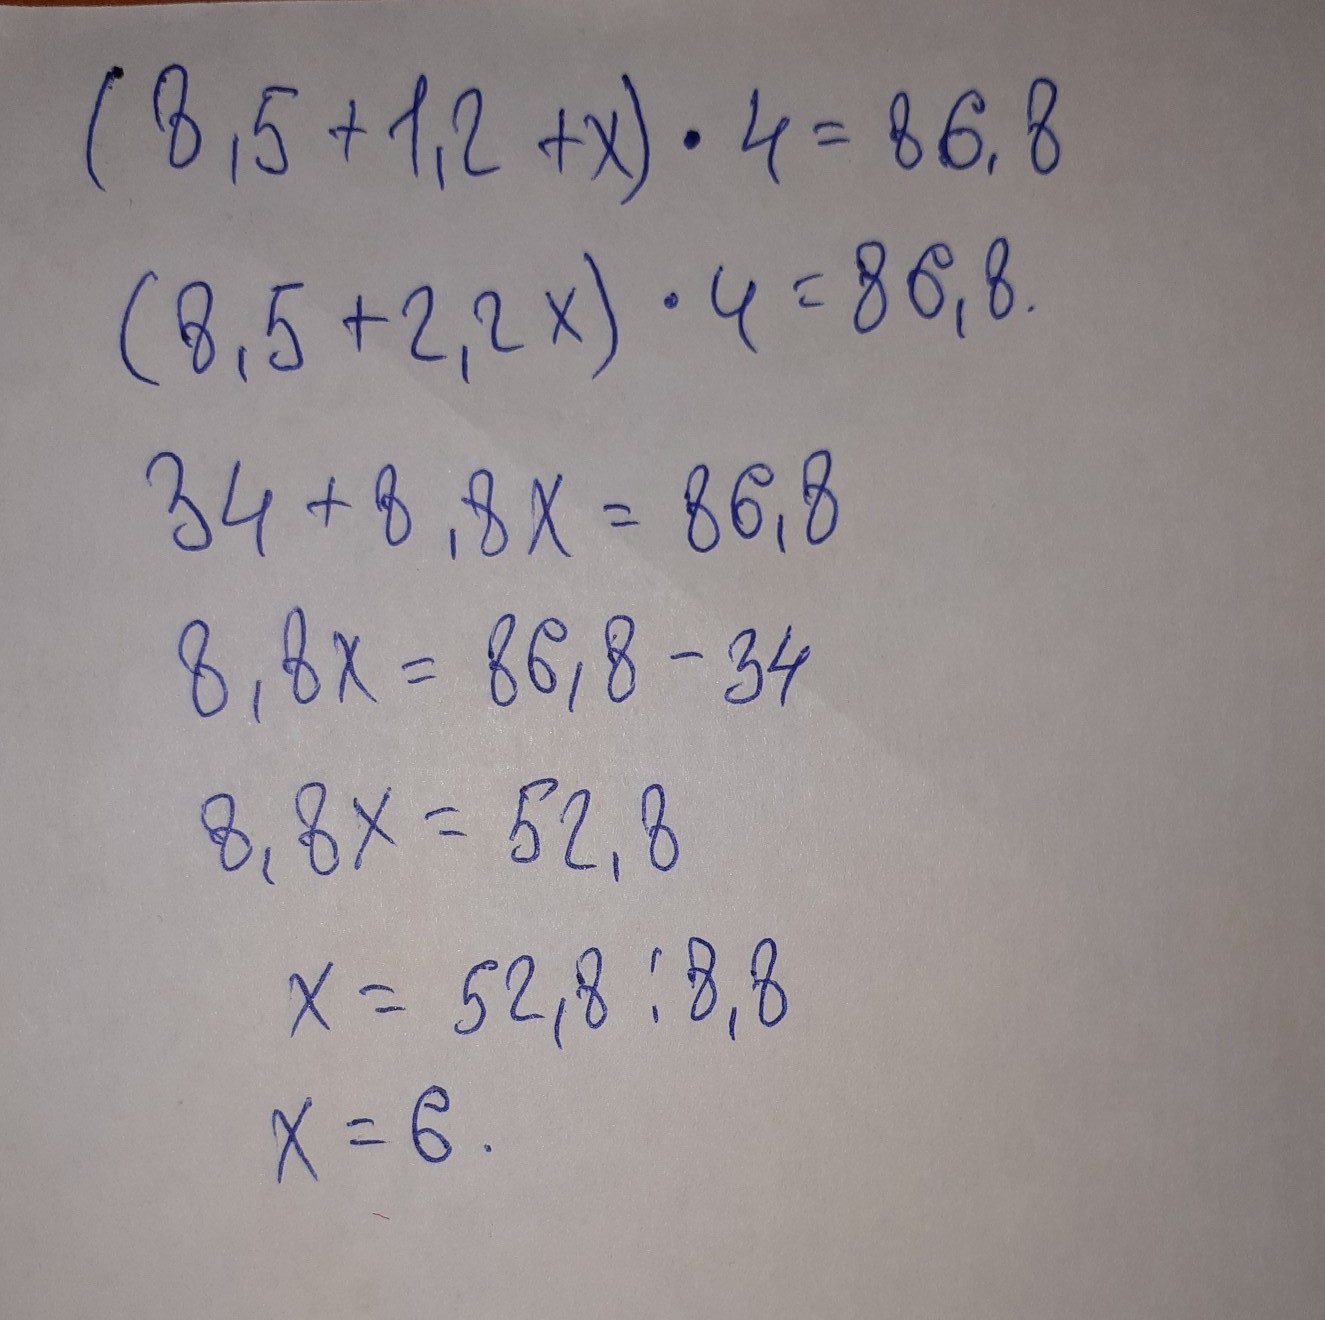 (8,5+1,2+x)·4=86,8
(8,5+2,2x)·4=86,8.
34+8,8x=86,8
8,8x=86,8-34
8,8x=52,8
x=52,8:8,8
x=6.